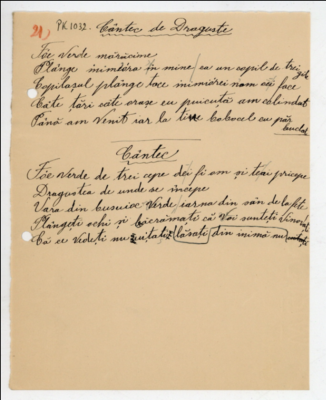 21) PK 1032. Cântec de Dragoste
Foe verde mărăcine
Plânge inimióra în mine ca un copil de trei zile
Copilașul plânge tace inimiórei nam cei face
Câte țări câte orașe cu puicuța am colindat
Până am venit iar la tine bobocel cu păr
buclat
Cântec
Foe verde de trei cepe dei fi om și teai pricepe
Dragostea de unde se începe
Vara din busuioc verde iarna din sân de la fete
Plângeți ochi și lăcrămați că voi sunteți vinovați
Că ce vedeți nu uitați lăsați din inimă nu